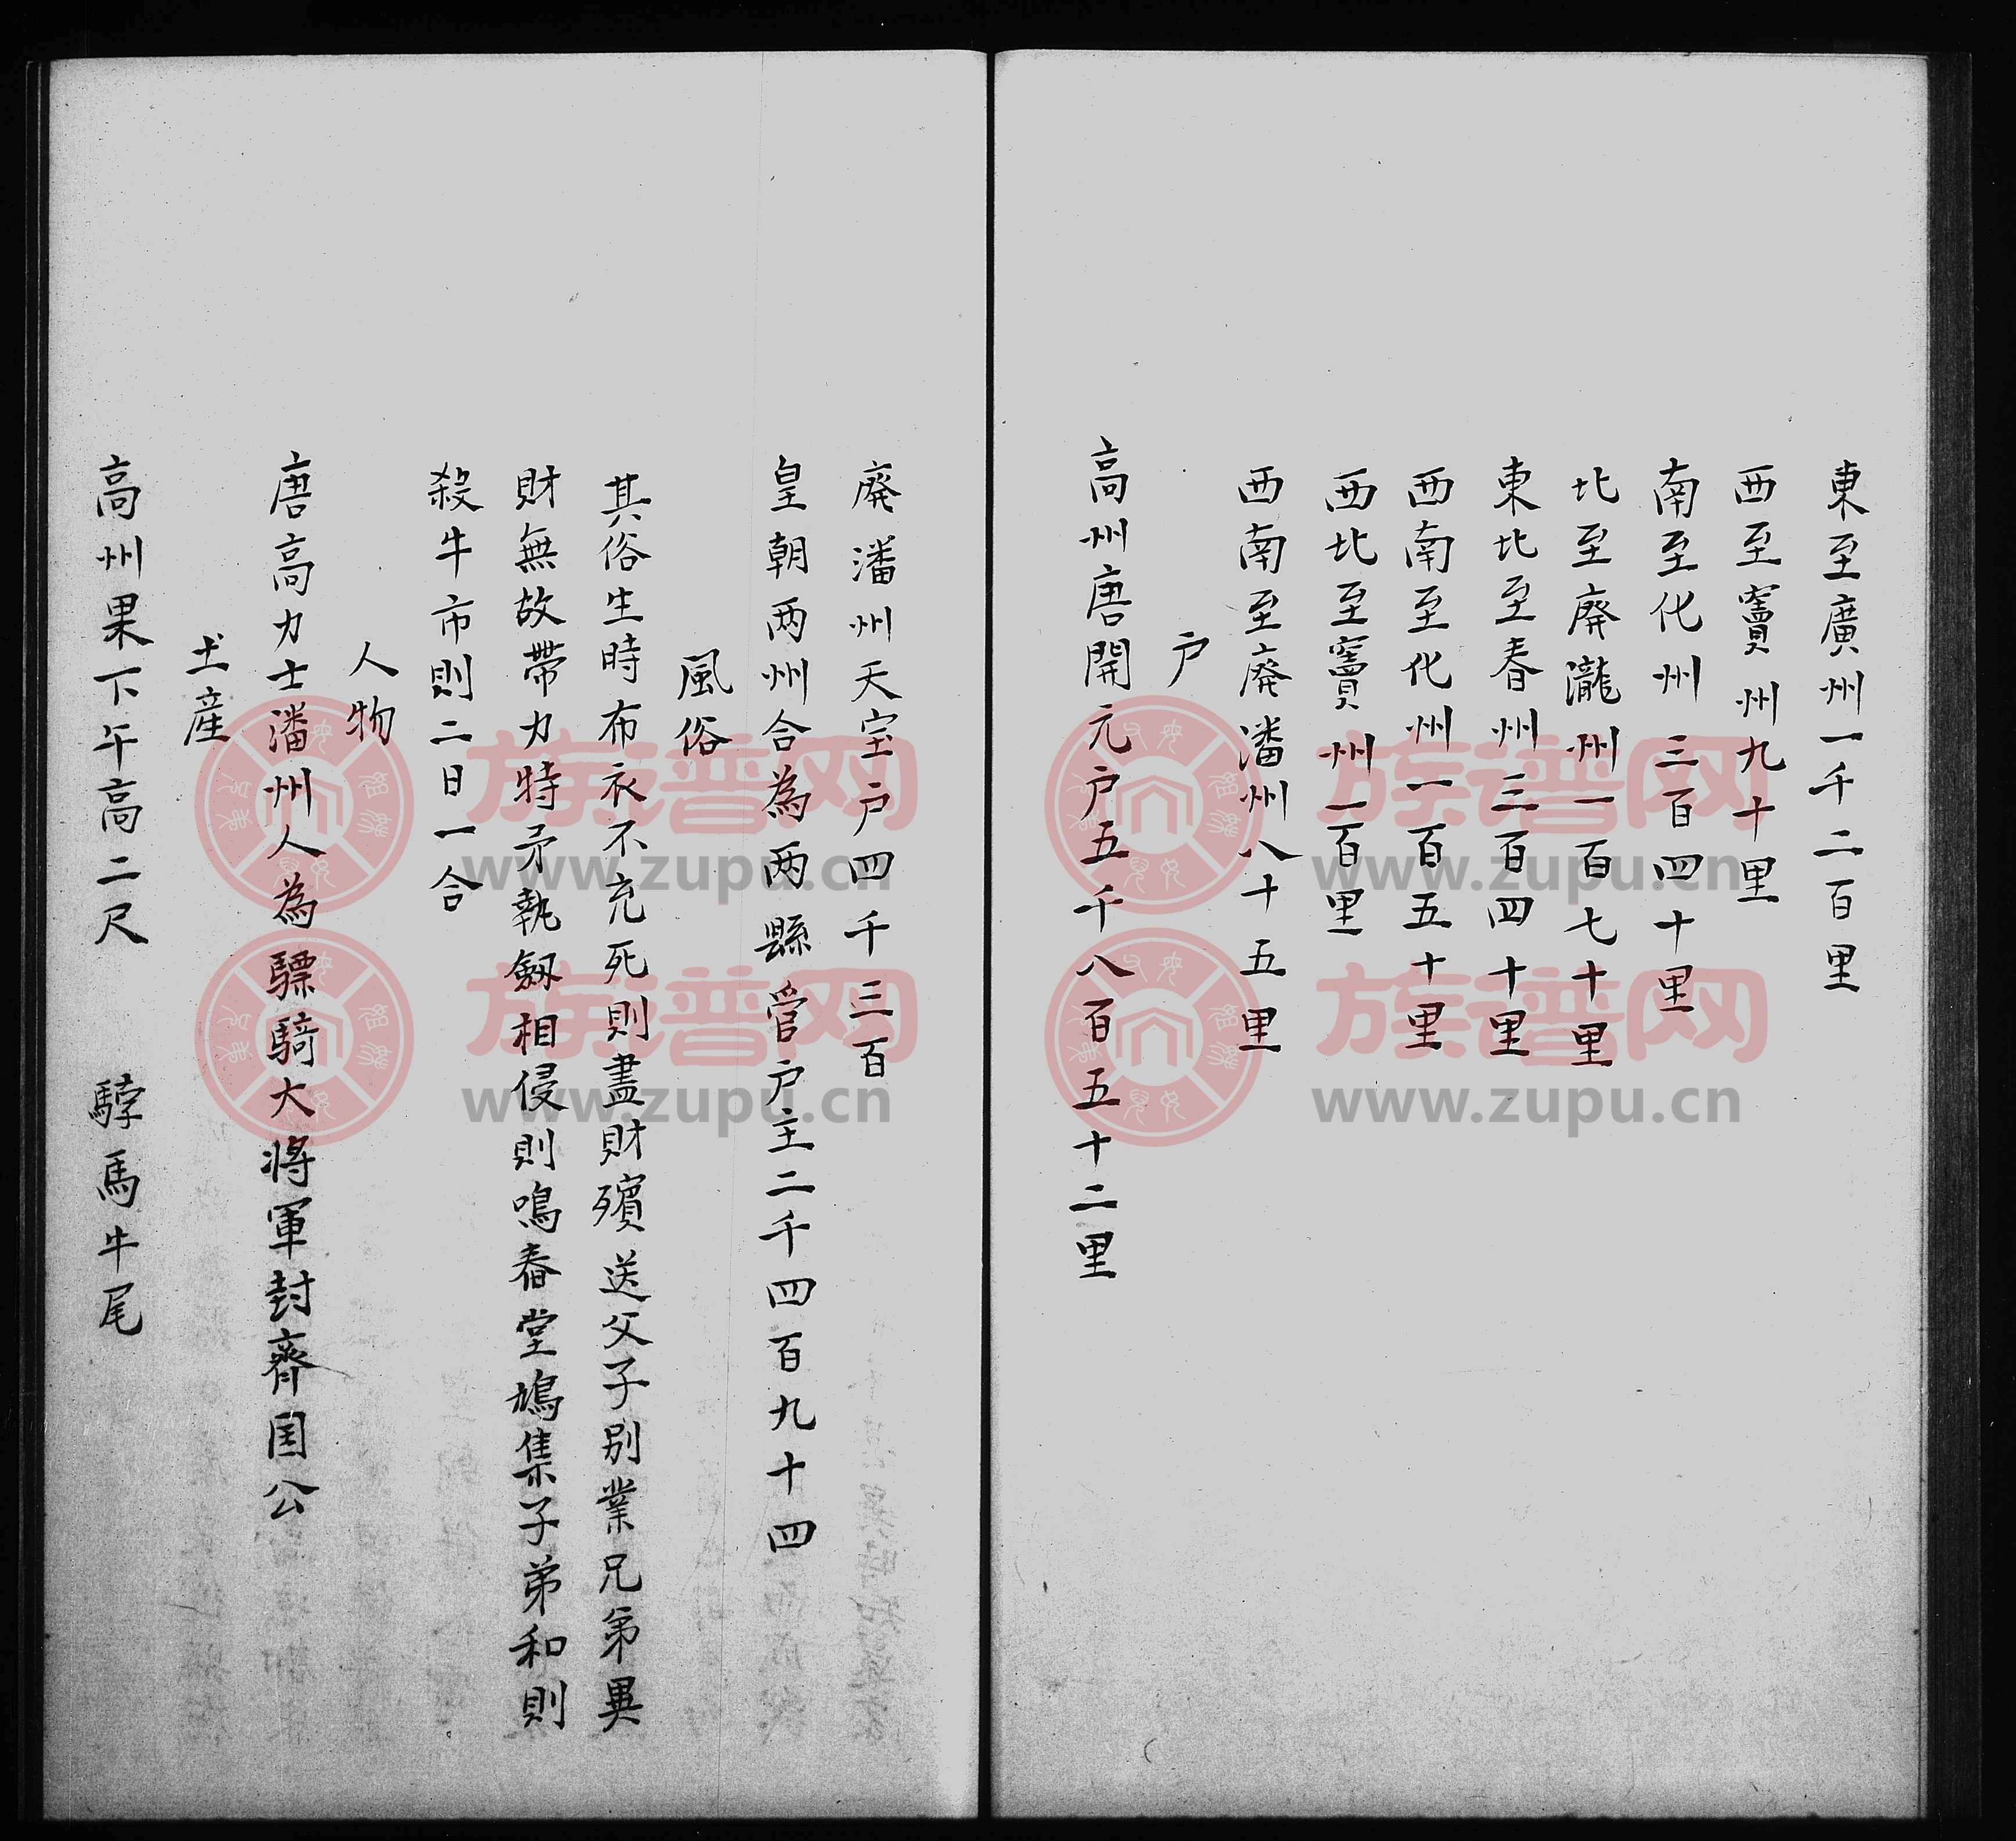 東至廣州一千二百里
西至竇州九十里
南至化州三百四十里
北至廢瀧州一百七十里
東北至春州三百四十里
西南至化州一百五十里
西北至竇州一百里
西南至廢潘州八十五里
户
高州唐開元户五千八百五十二里
廢潘州天宝户四千三百
皇朝两州合為两縣管户主二千四百九十四
風俗
其俗生時布衣不充死則盡財殯送父子别業兄弟異
財無故帶刀特矛執劔相侵則鳴春堂鳩集子弟和則
殺牛市則二日一合
人物
唐高力士潘州人為驃騎大將軍封齊国公
土産
高州果下午高二尺 騲馬牛尾
族谱网
www.zupu.cn
族谱网
www.zupu.cn
族谱网
www.zupu.cn
族谱网
www.zupu.cn